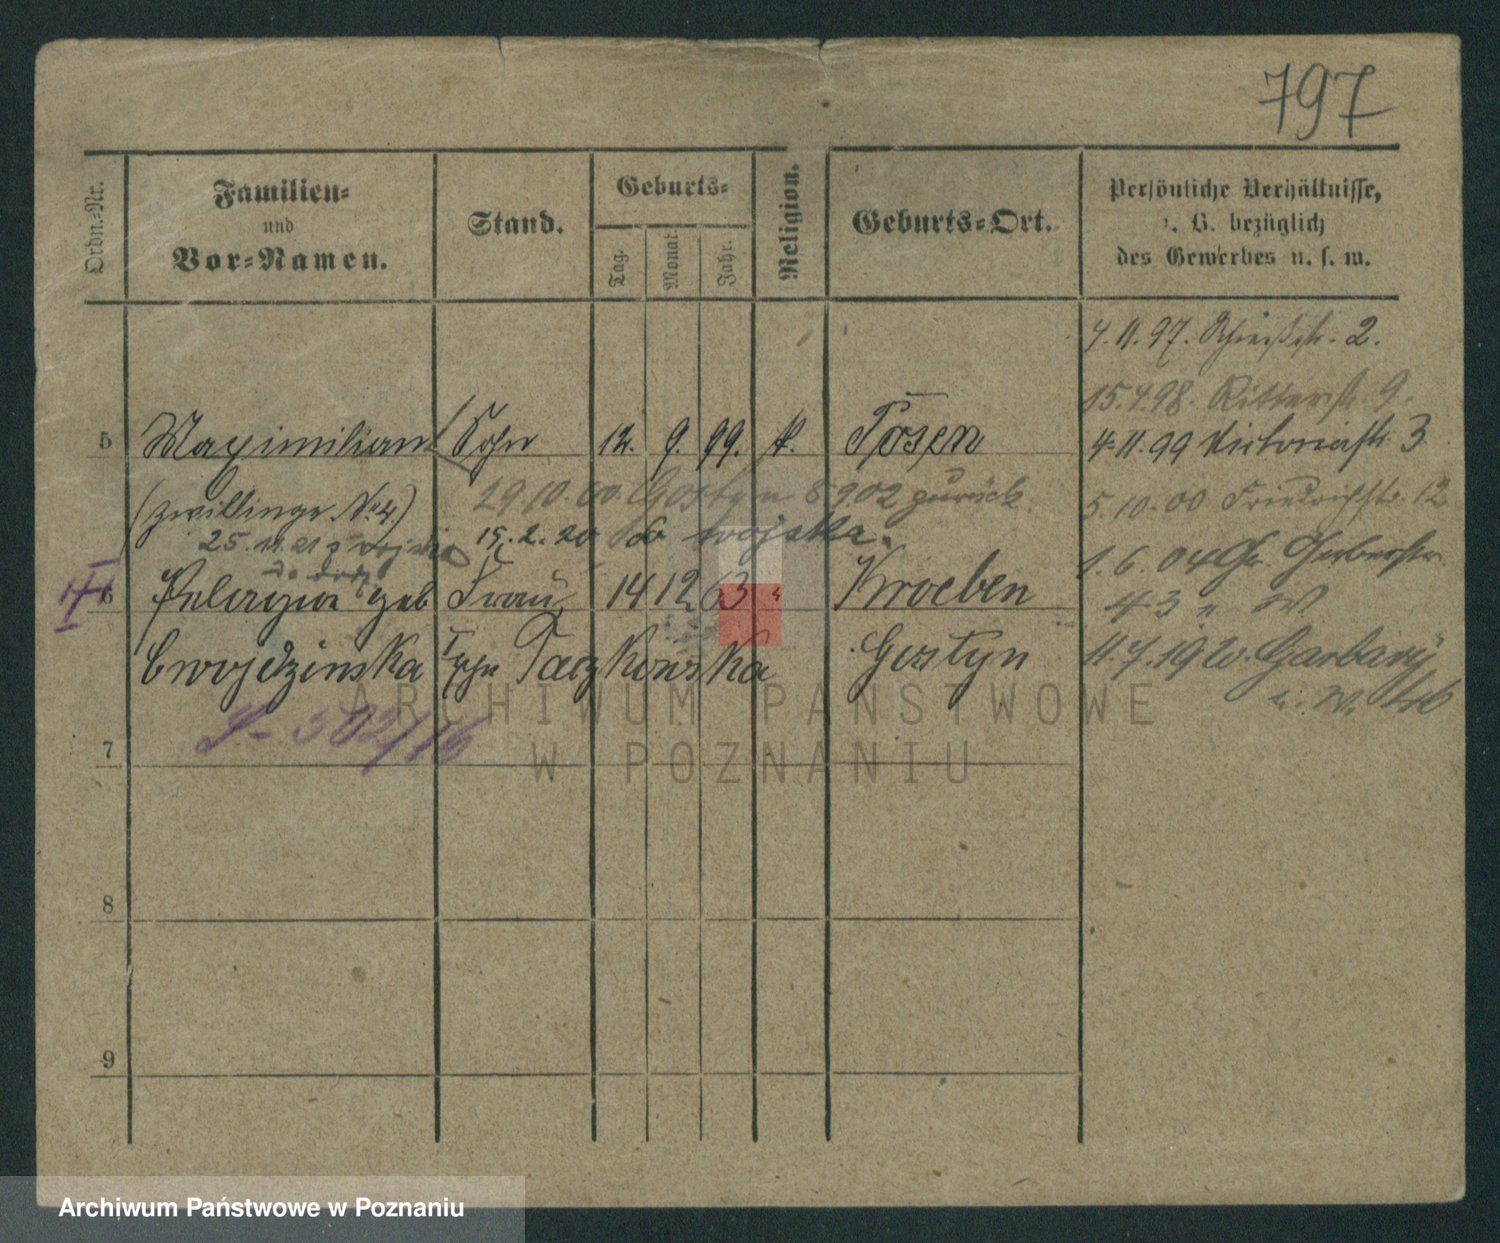 797
Ordn.-Nr.
Familien-
und
Vor-Namen.
Stand.
Geburts-
Tag.
Monat.
Jahr.
Religion.
Geburts-Ort.
Persönliche Verhältnisse,
z. B. bezüglich
des Gewerbes u. s. w.
4.11.97. Schießstr. 2.
15.4.98. Ritterstr. 9.
5 Maximilian Sohn 12. 9. 99. k. Posen
4.11.99 Victoriastr 3
(Zwillinge N. 4.) 29.10.00. Gostyn 8 9 02 zurück.
5.10.00 Friedrichstr. 12
25.11.21 z wojska 15.2.20 do wojska.
1.6.04 Gr. Gerberstr.
6 Pelagia geb Frau 14 12 63 " Kroeben
43 n W
Cwojdzinska Taczkowska Gostyn
11.7.1920. Garbary
S- 502/16
7
8
9
ARCHIWUM PAŃSTWOWE
W POZNANIU
Archiwum Państwowe w Poznaniu